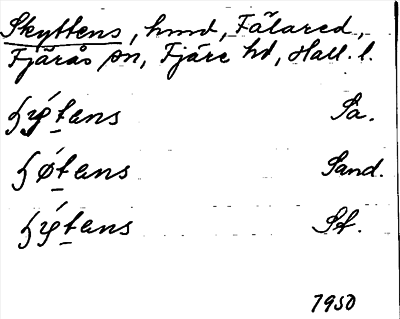 Skyttens, hmd, Fälared,
Fjärås sn, Fjäre hd, Hall. l.
ɧÿ́t̠ens Sa.
ɧǿt̠ens Sand.
ɧÿ́t̠ens St.
1950